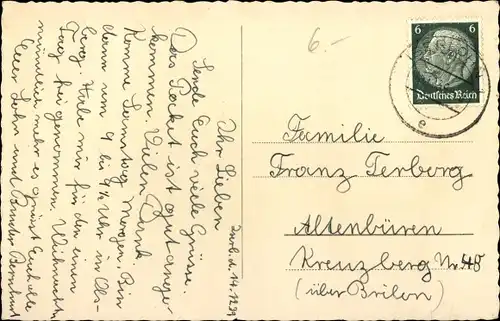 6.-
6 6
Deutsches Reich
Familie
Franz Terberg
Altenbüren
Kreuzberg Nr. 48
(über Brilon)
d. 14.12.39
Ihr Lieben
Sende Euch viele Grüsse.
Das Packet ist gut ange-
kommen. Vielen Dank
Komme Samstag Morgen. Bin
dann um 9 bis 9½ Uhr in Ols-
berg. Habe mir für den einen
Tag frei genommen. Weihnachten
mündlich mehr es grüsst Euch alle
Euer Sohn und Bruder Bernhard